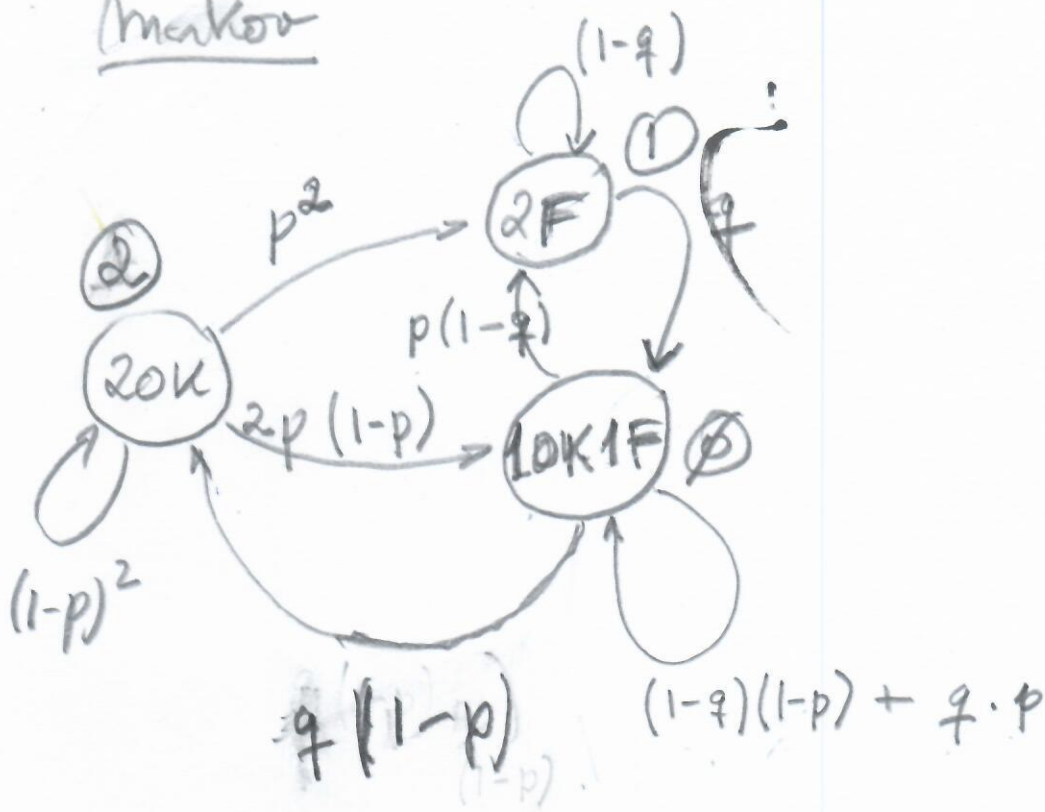 Markov
(1-q)
1
2F
q
p²
2
p(1-q)
2OK
2p(1-p)
1OK1F
Ø
(1-p)²
q(1-p)
(1-q)(1-p) + q.p
(1-p)